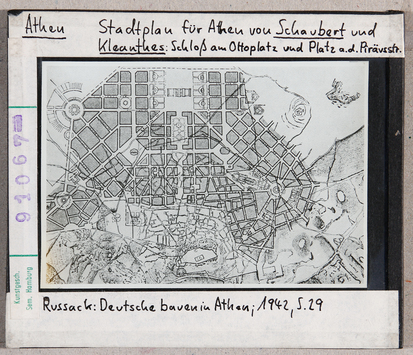 Athen Stadtplan für Athen von Schaubert und
Kleanthes: Schloß am Ottoplatz und Platz a.d. Pirävsstr.
91067
Kunstgesch.
Sem. Hamburg
Russack: Deutsche bauen in Athen; 1942, S. 29